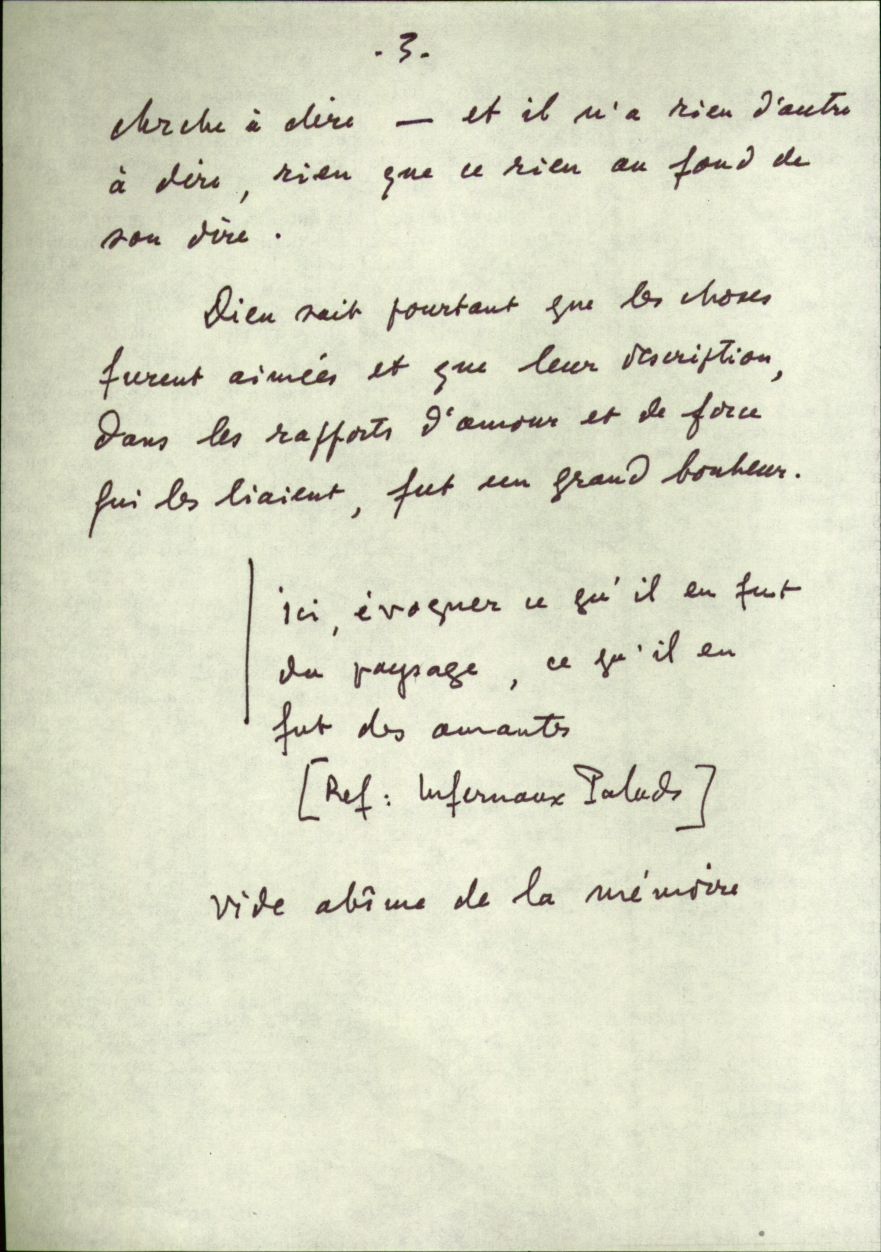 . 3 .
cherche à dire — et il n'a rien d'autre
à dire, rien que ce rien au fond de
son dire .
Dieu sait pourtant que les choses
furent aimées et que leur description,
dans les rapports d'amour et de force
qui les liaient, fut un grand bonheur.
ici, évoquer ce qu'il en fut
du paysage, ce qu'il en
fut des amantes
[Ref : Infernaux Paluds]
vide abîme de la mémoire